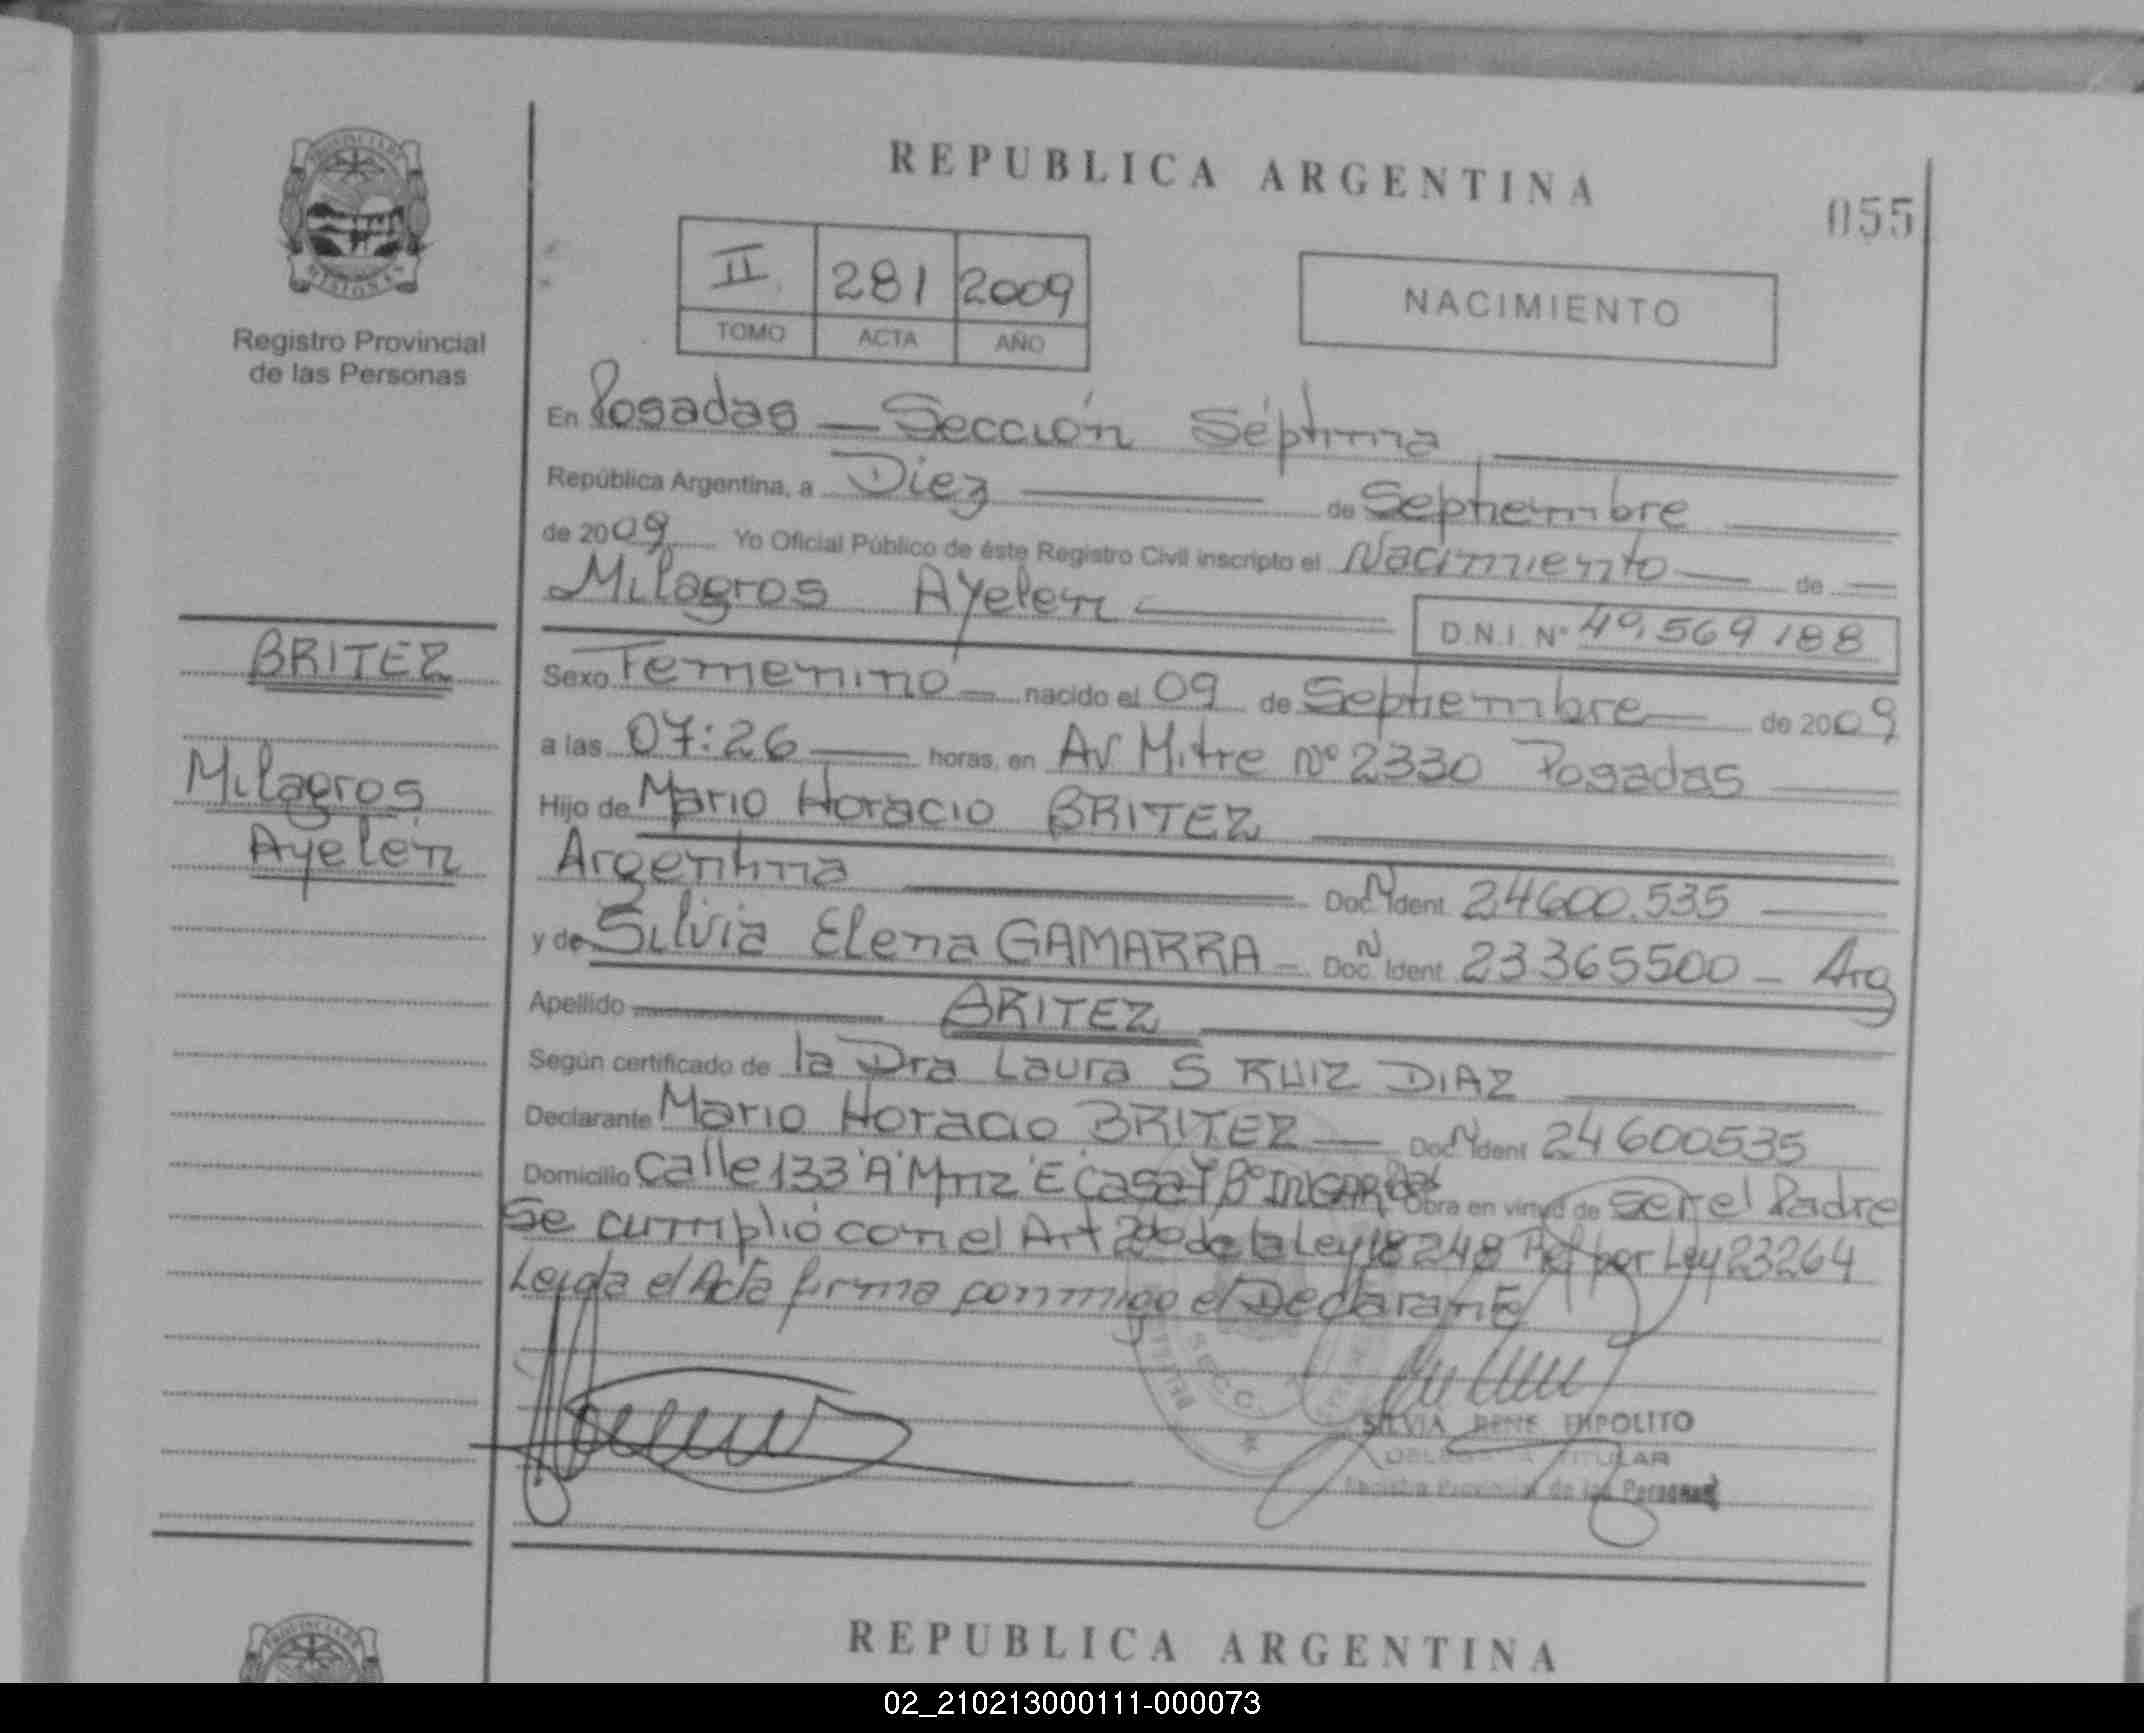 REPUBLICA ARGENTINA
055
PROVINCIA DE
MISIONES
Registro Provincial
de las Personas
II 281 2009
TOMO ACTA AÑO
NACIMIENTO
En Posadas — Sección Séptima
República Argentina, a Diez de Septiembre
de 2009 Yo Oficial Público de éste Registro Civil inscripto el Nacimiento de
Milagros Ayelen
D.N.I. Nº 49.569188
BRITEZ
Milagros
Ayelén
Sexo Femenino nacido el 09 de Septiembre de 2009
a las 07:26 horas, en Av Mitre Nº 2330 Posadas
Hijo de Mario Horacio BRITEZ
Argentina Doc. N Ident 24600.535
y de Silvia Elena GAMARRA - Doc. N Ident 23365500 - Arg
Apellido BRITEZ
Según certificado de la Dra Laura S RUIZ DIAZ
Declarante Mario Horacio BRITEZ Doc. N Ident 24600535
Domicilio Calle 133 "A" Mnz "E" Casa Bº Obra en virtud de ser el Padre
Se cumplió con el Art de la Ley 18248 Ref por Ley 23264
Leida el Acta firma conmigo el Declarante
SECC.
SILVIA RENE IMPOLITO
TITULAR
Registro Provincial de las Personas
REPUBLICA ARGENTINA
02_210213000111-000073